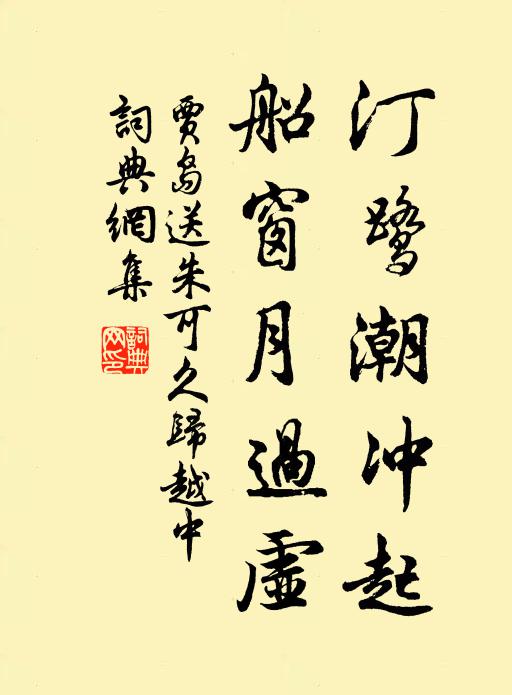 汀鷺潮冲起
船窗月過虛
賈島送朱可久歸越中
詞典網集
詞典網印